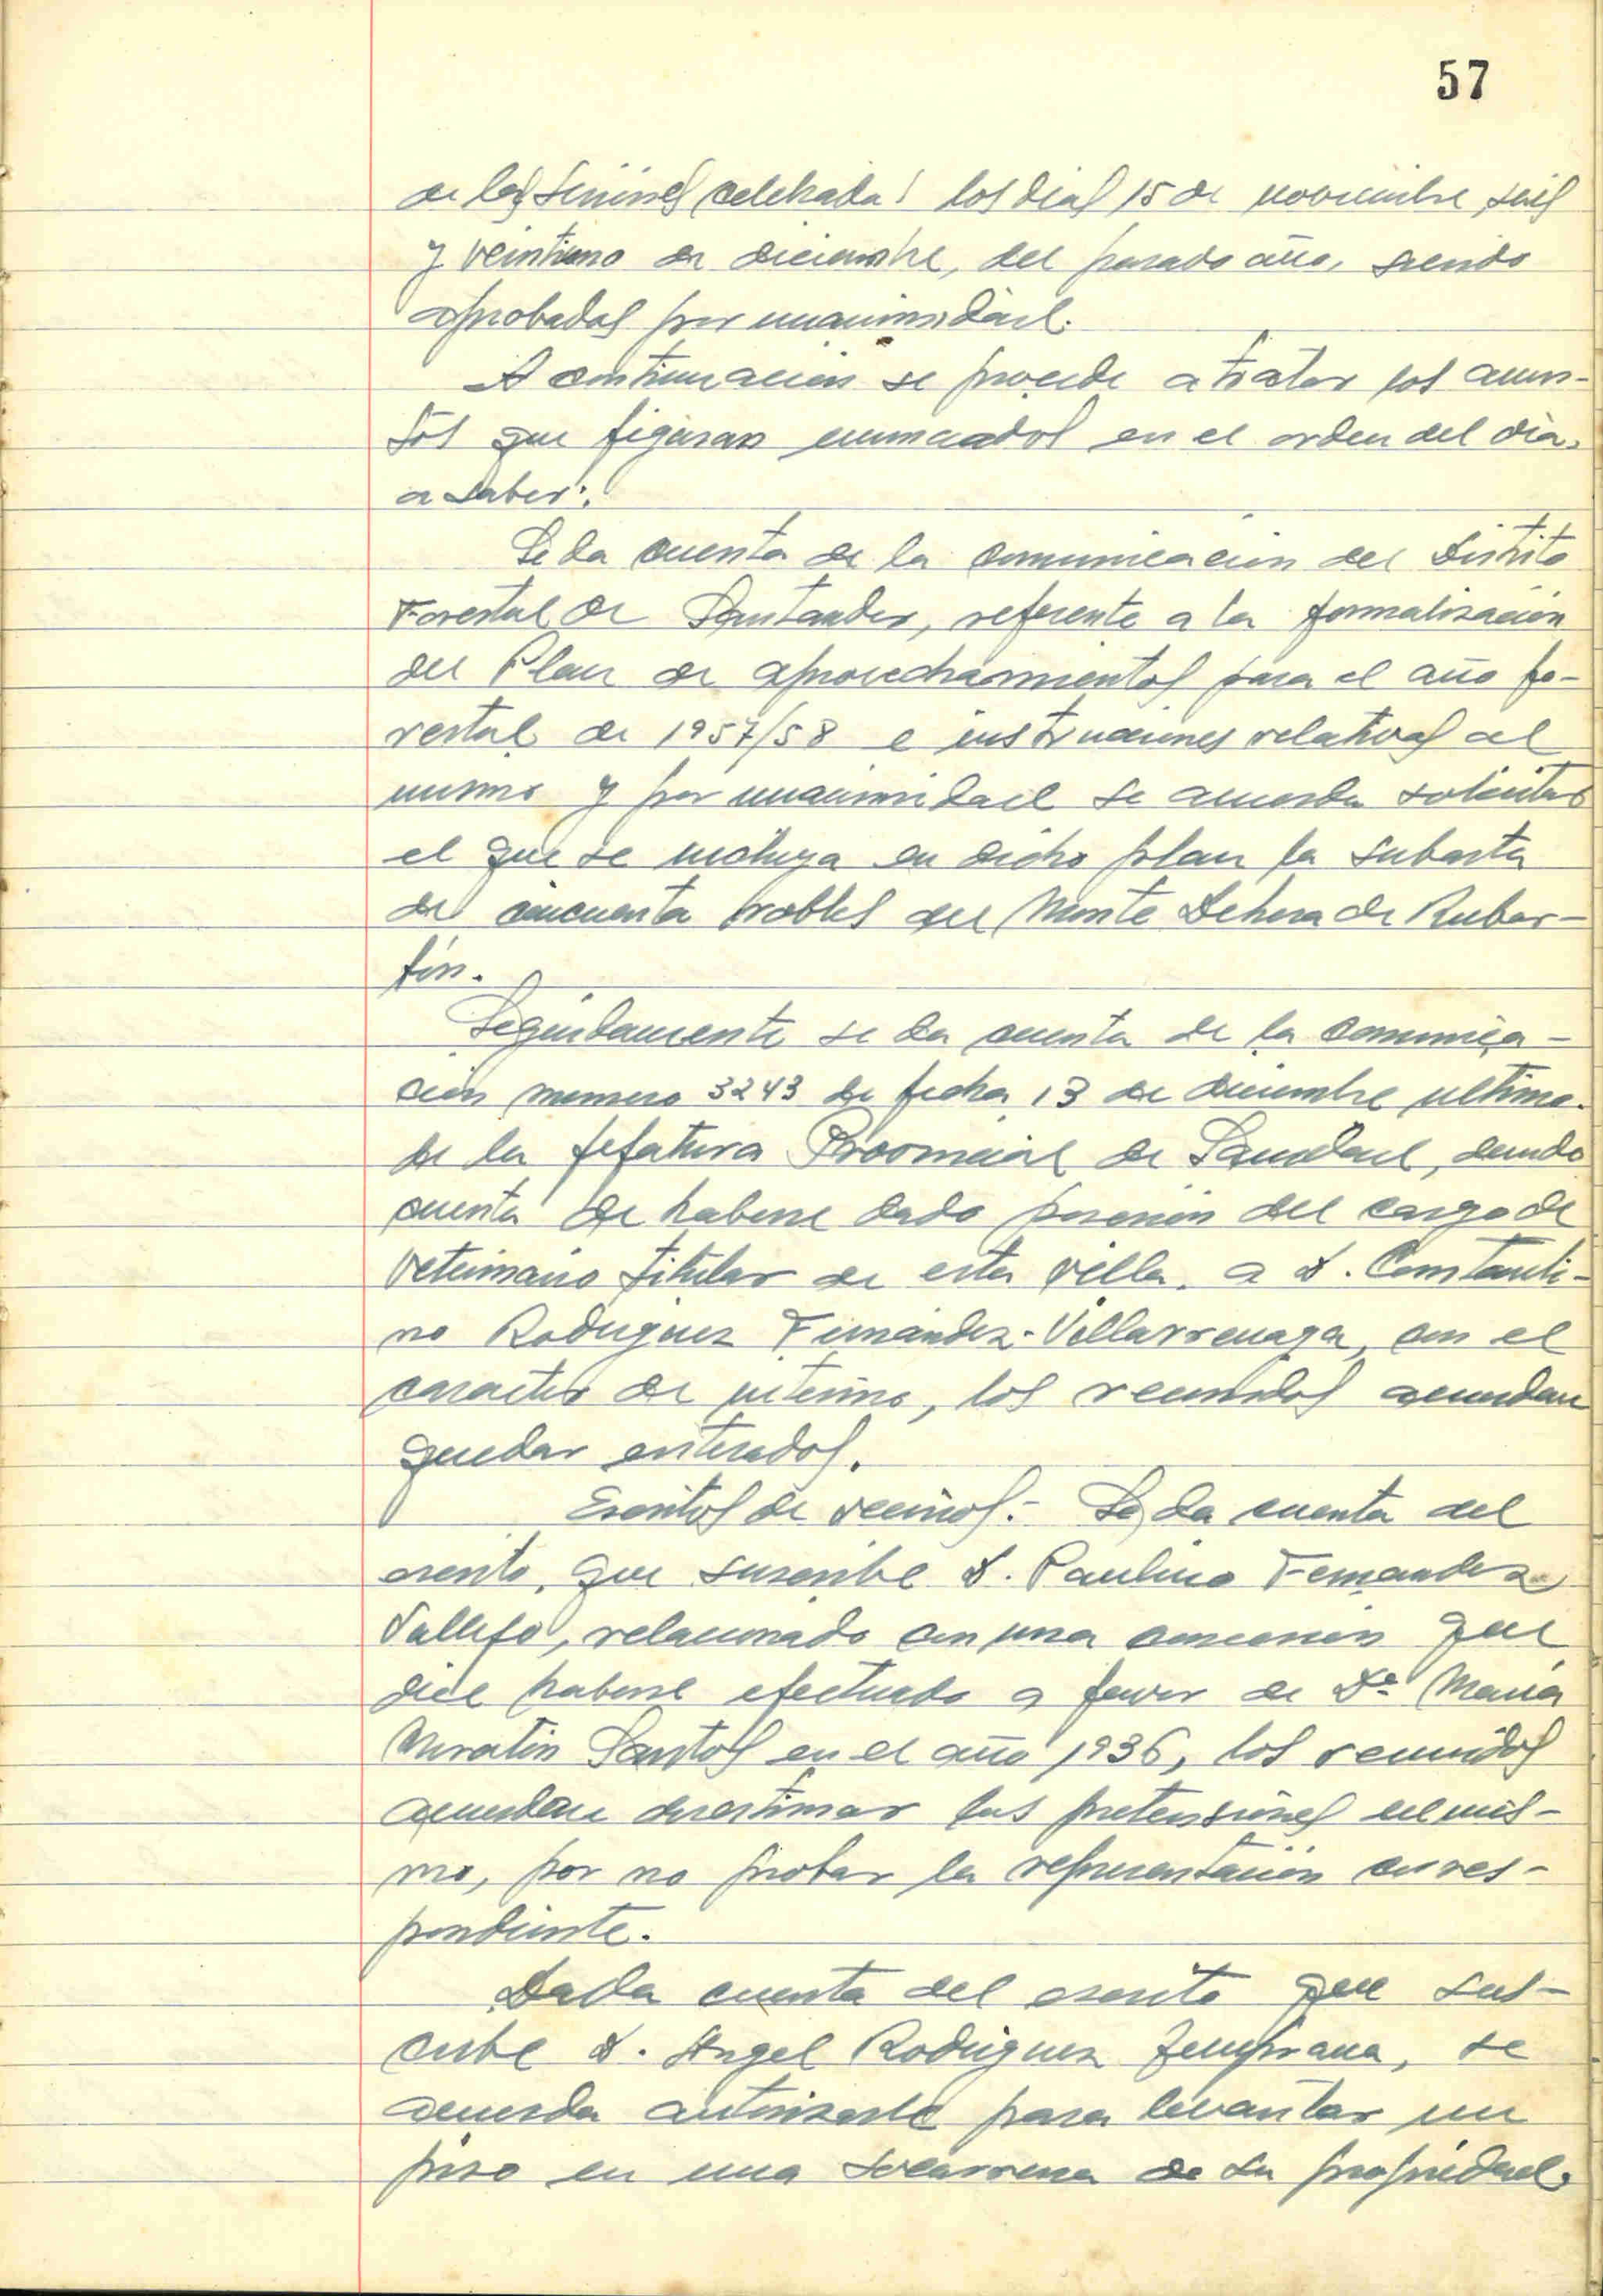 57
de las sesiones celebradas los dias 15 de noviembre, seis
y veintiuno de diciembre, del pasado año, siendo
aprobadas por unanimidad.
A continuación se procede a tratar los asun-
tos que figuran enumerados en el orden del dia,
a saber:
Se da cuenta de la comunicación del Distrito
Forestal de Santander, referente a la formalización
del Plan de aprovechamientos para el año fo-
restal de 1957/58 e instrucciones relativas al
mismo y por unanimidad se acuerda solicitar
el que se incluya en dicho plan la subasta
de cincuenta robles del Monte Dehesa de Rubar-
tín.
Seguidamente se da cuenta de la comunica-
ción numero 3243 de fecha 13 de diciembre ultimo.
de la Jefatura Provincial de Sanidad, dando
cuenta de haberse dado posesión del cargo de
Veterinario titular de esta villa, a D. Constanti-
no Rodriguez Fernández-Villarrenaga, con el
caracter de interino, los reunidos acuerdan
quedar enterados.
Escritos de vecinos.- Se da cuenta del
escrito, que suscribe D. Paulino Fernandez
Vallejo, relacionado con una concesión que
dice haberse efectuado a favor de Dª María
Moratin Santos en el año 1936, los reunidos
acuerdan desestimar las pretensiones del mis-
mo, por no probar la representación corres-
pondiente.
Dada cuenta del escrito que sus-
cribe D. Angel Rodriguez Zemprana, se
acuerda autorizarle para levantar un
piso en una socarrena de su propiedad.